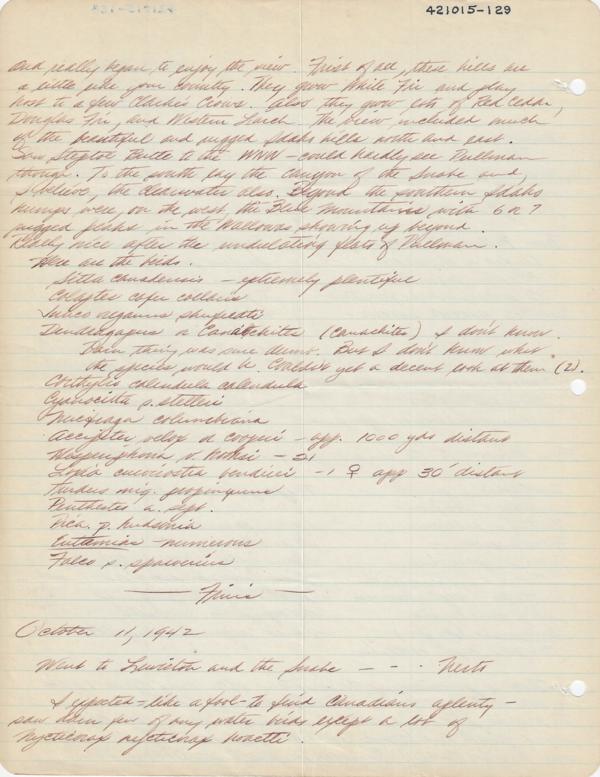 421015-129
and really began to enjoy the view. First of all, these hills are
a little like your country. They grow White Fir and play
host to a few Clarkes Crows. Also they grow lots of Red Cedar,
Douglas Fir, and Western Larch. The view included much
of the beautiful and rugged Idaho hills north and east.
Saw Steptoe Butte to the WNW – could hardly see Pullman
though. To the south lay the canyon of the Snake and,
I believe, the Clearwater also. Beyond the southern Idaho
humps were, on the west, the Blue Mountains with 6 or 7
jagged peaks in the Wallowas showing up beyond.
Really nice after the undulating flats of Pullman.
Here are the birds.
Sitta canadensis – extremely plentiful
Colaptes cafer collaris
Junco oreganus shufeldti
Dendragapus or Canachites (Canachites) I don't know.
Darn thing was sure dumb. But I don't know what
the species would be. Couldn't get a decent look at them (2).
Corthylio calendula calendula
Cyanocitta s. stelleri
Nucifraga columbiana
Accipiter velox or cooperi – app. 1000 yds distant
Hesperiphona v. – 21
Loxia curvirostra bendirei – 1 ♀ app 30' distant
Turdus mig. propinquus
Penthestes a. sept.
Pica p. hudsonia
Eutamias – numerous
Falco s. sparverius
— Finis —
October 11, 1942
Went to Lewiston and the Snake – – – . Nerts
I expected – like a fool – to find Canadians aplenty –
saw darn few of any water birds except a lot of
Nycticorax nycticorax hoactli.